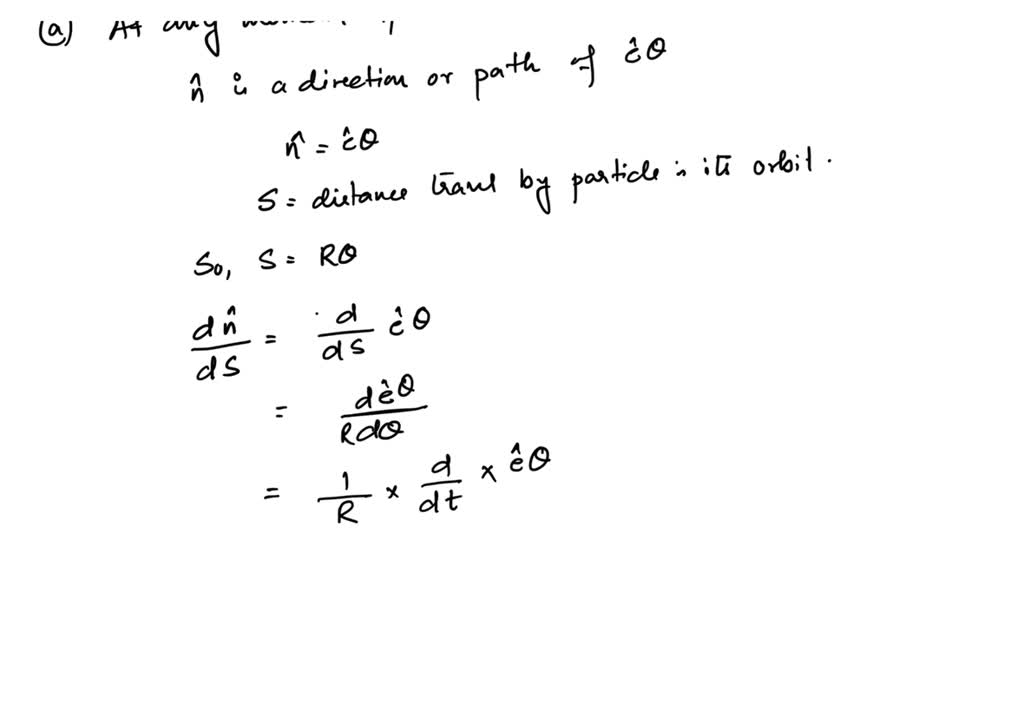 (a) At any
n̂ is a direction or path of êθ
n̂ = êθ
S = distance travel by particle in its orbit.
So, S = Rθ
dn̂/dS = d/dS êθ
= dêθ/Rdθ
= 1/R × d/dt × êθ